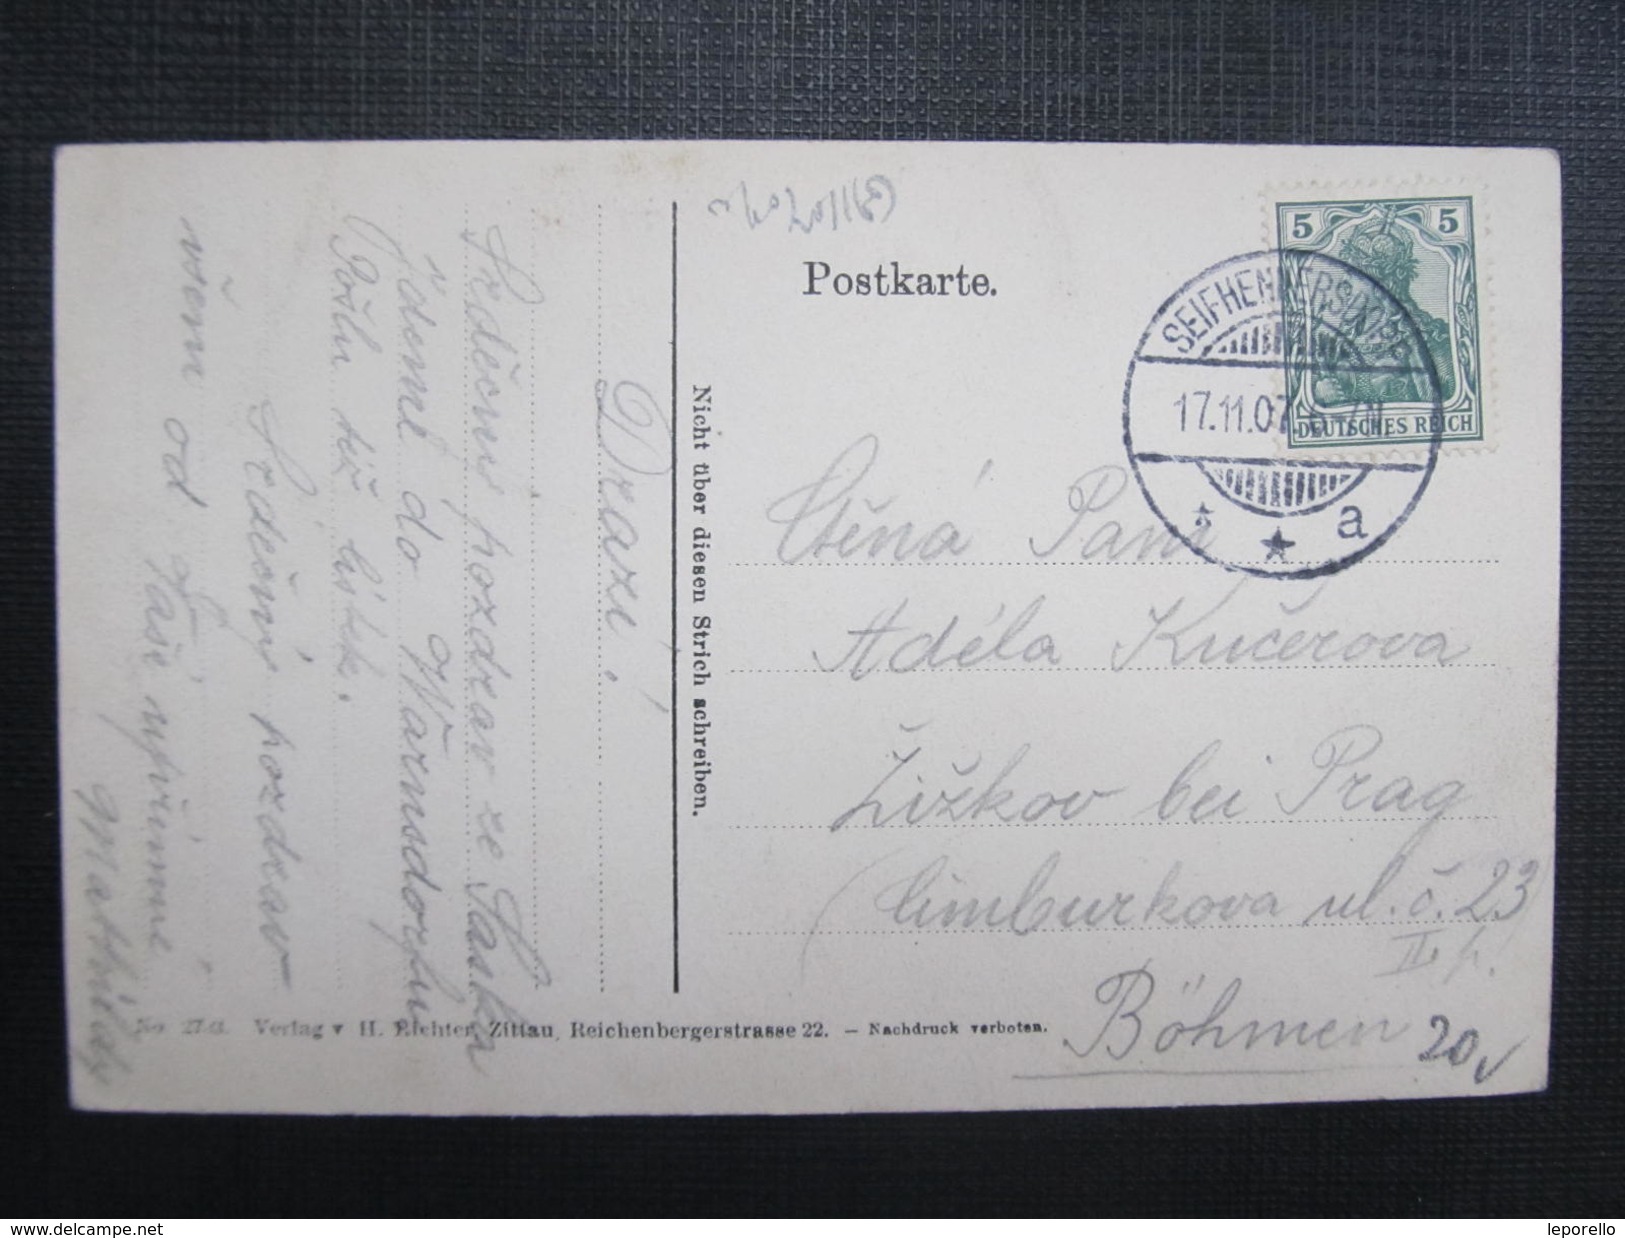 Postkarte.
5 5
DEUTSCHES REICH
SEIFHENNERSDORF
17.11.07
a
Nicht über diesen Strich schreiben.
Ctěná Paní
Adéla Kučerova
Žižkov bei Prag
Cimburkova ul. č. 23
II. p.
Böhmen
20
Drazí!
Srdečný pozdrav ze Saska
jdeme do Warnsdorfu
Pošlu též lístek.
Srdečný pozdrav
všem od Vaše upřímné
Mathildy
No 27 Verlag v H. Richter, Zittau, Reichenbergerstrasse 22. — Nachdruck verboten.
www.delcampe.net
leporello